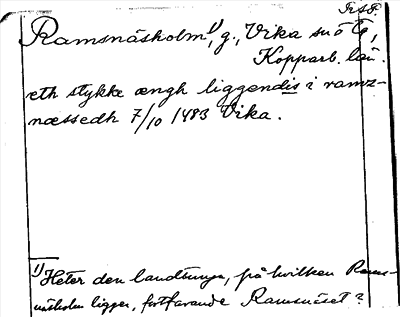 Ramsnäsholm¹⁾, g., Vika sn
Kopparb. län.
eth stykke ængh liggendis i ramz-
næssedh 7/10 1483 Vika.
1) Heter den landtunga, på hvilken Rams-
näsholm ligger, fortfarande Ramsnäset?